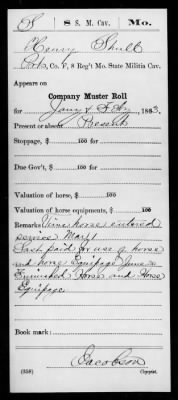 S 8 S. M. Cav. Mo.
Henry Shult
Co. F, 8 Reg't Mo. State Militia Cav.
Appears on
Company Muster Roll
for Jany & Feby, 1863.
Present or absent Present
Stoppage, $ 100 for
Due Gov't, $ 100 for
Valuation of horse, $ 100
Valuation of horse equipments, $ 100
Remarks: horse entered
service
Last paid for use of horse
and horse Equipage June
Furnished Horse and Horse
Equipage
Book mark:
Jacobson
(358) Copyist.